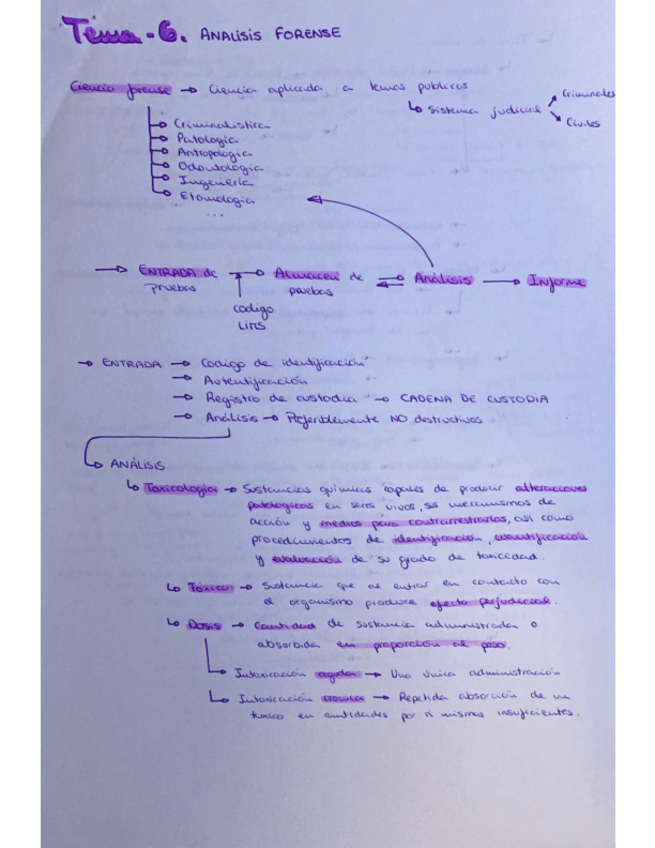 Tema-6. ANALISIS FORENSE
Ciencia forense → Ciencia aplicada a temas publicos
↳ Sistema judicial
Criminales
Civiles
Criminalistica
Patologia
Antropologia
Odontologia
Ingenieria
Etomologia
...
→ ENTRADA de pruebas → Almacen de pruebas ⇄ Análisis → Informe
codigo
LIMS
→ ENTRADA → Codigo de identificación
→ Autentificación
→ Registro de custodia → CADENA DE CUSTODIA
→ Análisis → Preferiblemente NO destructivos
↳ ANÁLISIS
↳ Toxicologia → Sustancias químicas capaces de producir alteraciones
patologicas en seres vivos, sus mecanismos de
acción y medios para contrarrestarlos, así como
procedimientos de identificación, cuantificación
y evaluación de su grado de toxicidad.
↳ Tóxico → Sustancia que al entrar en contacto con
el organismo produce efecto perjudicial.
↳ Dosis → Cantidad de sustancia administrada o
absorbida en proporción al peso.
↳ Intoxicación aguda → Una única administración
↳ Intoxicación cronica → Repetida absorción de un
toxico en cantidades por si mismas insuficientes.